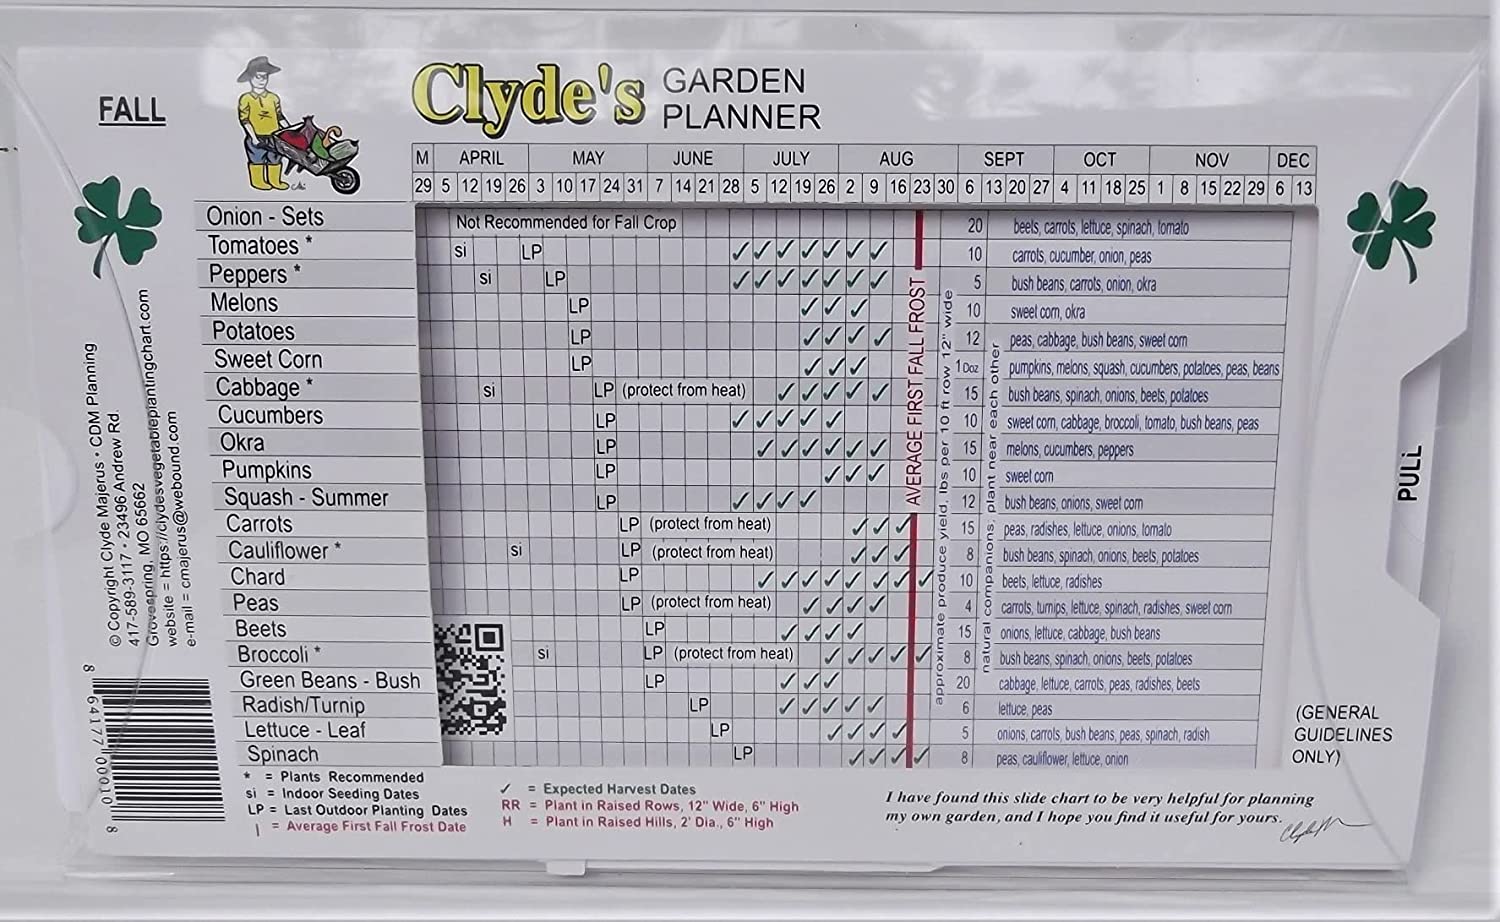 FALL
Clyde's GARDEN
PLANNER
M APRIL MAY JUNE JULY AUG SEPT OCT NOV DEC
29 5 12 19 26 3 10 17 24 31 7 14 21 28 5 12 19 26 2 9 16 23 30 6 13 20 27 4 11 18 25 1 8 15 22 29 6 13
Onion - Sets Not Recommended for Fall Crop 20 beets, carrots, lettuce, spinach, tomato
Tomatoes * si LP ✓✓✓✓✓✓✓ 10 carrots, cucumber, onion, peas
Peppers * si LP ✓✓✓✓✓✓✓ 5 bush beans, carrots, onion, okra
Melons LP ✓✓✓ 10 sweet corn, okra
Potatoes LP ✓✓✓✓ 12 peas, cabbage, bush beans, sweet corn
Sweet Corn LP ✓✓✓ 1 Doz pumpkins, melons, squash, cucumbers, potatoes, peas, beans
Cabbage * si LP (protect from heat) ✓✓✓✓✓ 15 bush beans, spinach, onions, beets, potatoes
Cucumbers LP ✓✓✓✓✓ 10 sweet corn, cabbage, broccoli, tomato, bush beans, peas
Okra LP ✓✓✓✓✓✓ 15 melons, cucumbers, peppers
Pumpkins LP ✓✓✓ 10 sweet corn
Squash - Summer LP ✓✓✓✓ 12 bush beans, onions, sweet corn
Carrots LP (protect from heat) ✓✓✓ 15 peas, radishes, lettuce, onions, tomato
Cauliflower * si LP (protect from heat) ✓✓✓ 8 bush beans, spinach, onions, beets, potatoes
Chard LP ✓✓✓✓✓✓✓✓ 10 beets, lettuce, radishes
Peas LP (protect from heat) ✓✓✓✓ 4 carrots, turnips, lettuce, spinach, radishes, sweet corn
Beets LP ✓✓✓✓ 15 onions, lettuce, cabbage, bush beans
Broccoli * si LP (protect from heat) ✓✓✓✓✓ 8 bush beans, spinach, onions, beets, potatoes
Green Beans - Bush LP ✓✓✓ 20 cabbage, lettuce, carrots, peas, radishes, beets
Radish/Turnip LP ✓✓✓✓✓ 6 lettuce, peas
Lettuce - Leaf LP ✓✓✓✓ 5 onions, carrots, bush beans, peas, spinach, radish
Spinach LP ✓✓✓✓ 8 peas, cauliflower, lettuce, onion
AVERAGE FIRST FALL FROST
approximate produce yield, lbs per 10 ft row 12" wide
natural companions, plant near each other
© Copyright Clyde Majerus • CDM Planning
417-589-3117 • 23496 Andrew Rd.
Grovespring, MO 65662
website = https://clydesvegetableplantingchart.com
e-mail = cmajerus@webound.com
8 64177 00010 8
PULL
(GENERAL
GUIDELINES
ONLY)
* = Plants Recommended
si = Indoor Seeding Dates
LP = Last Outdoor Planting Dates
| = Average First Fall Frost Date
✓ = Expected Harvest Dates
RR = Plant in Raised Rows, 12" Wide, 6" High
H = Plant in Raised Hills, 2' Dia., 6" High
I have found this slide chart to be very helpful for planning
my own garden, and I hope you find it useful for yours.